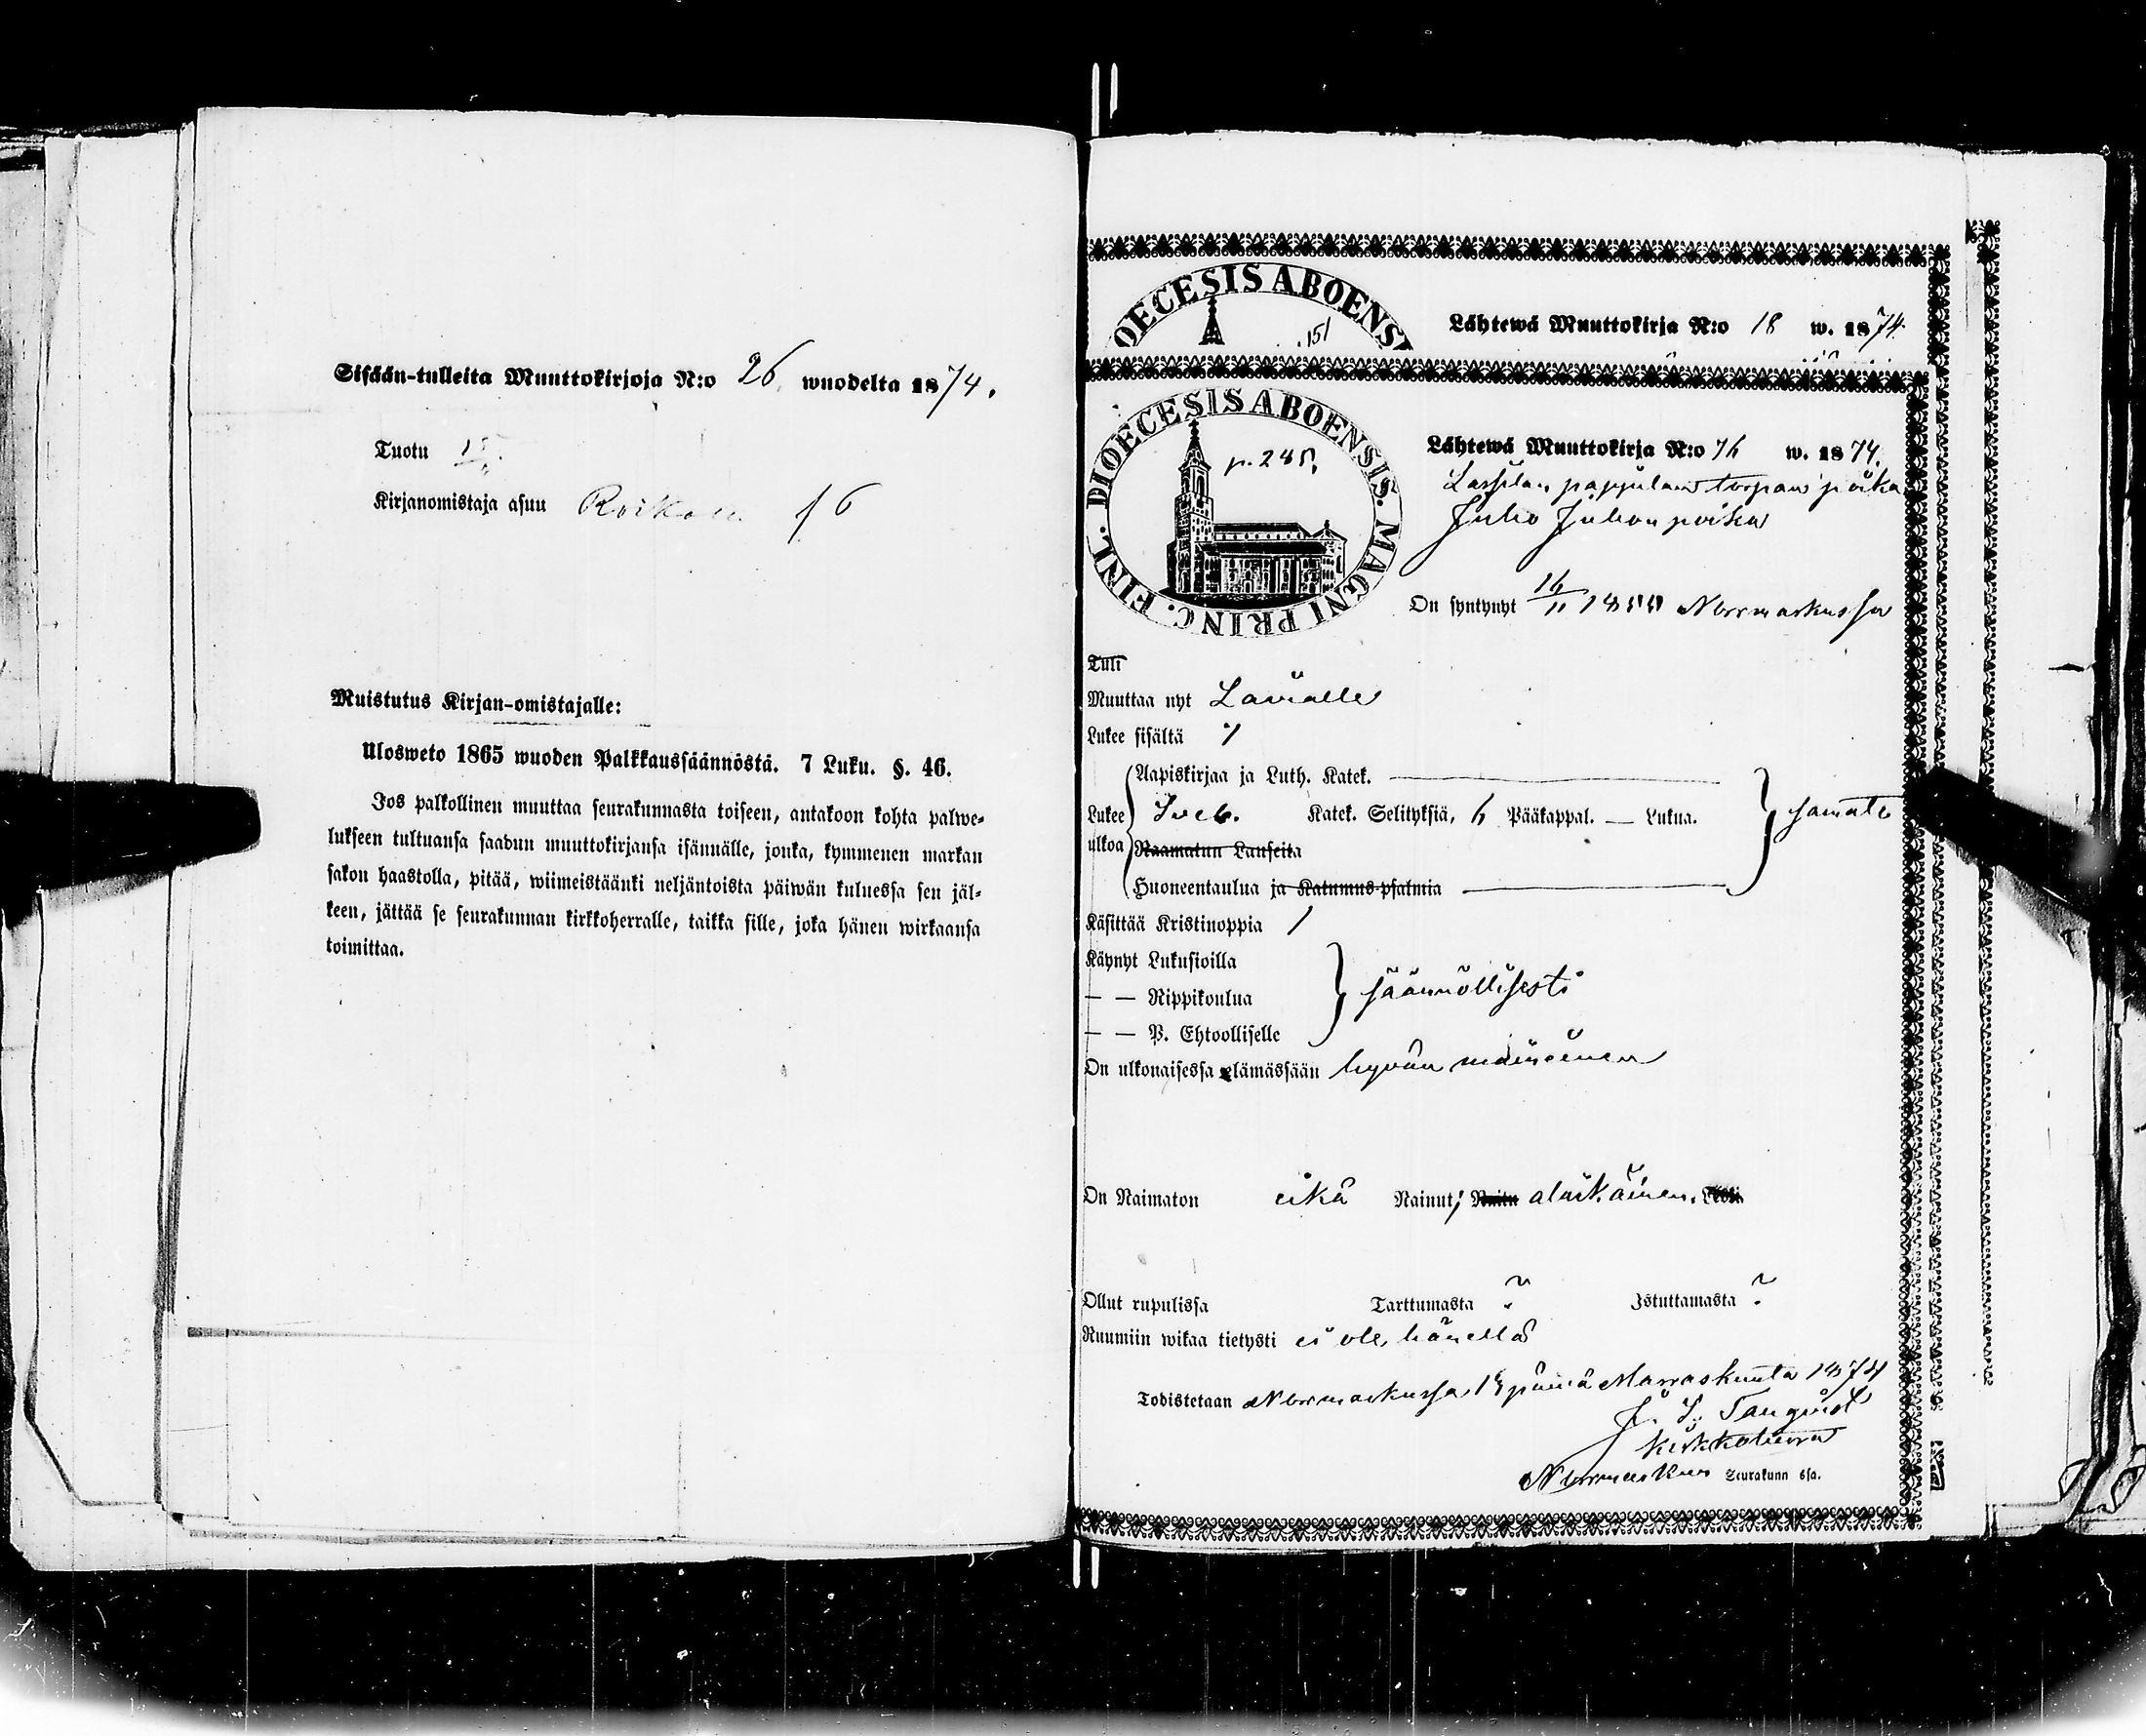 Sisään-tulleita Muuttokirjoja N:o 26. wuodelta 1874.
Tuotu
Kirjanomistaja asuu
Muistutus Kirjan-omistajalle:
Ulosweto 1865 wuoden Palkkaussäännöstä. 7 Luku. §. 46.
Jos palkollinen muuttaa seurakunnasta toiseen, antakoon kohta palwe-
lukseen tultuansa saadun muuttokirjansa isännälle, jonka, kymmenen markan
sakon haastolla, pitää, wiimeistäänki neljäntoista päiwän kuluessa sen jäl-
keen, jättää se seurakunnan kirkkoherralle, taikka sille, joka hänen wirkaansa
toimittaa.
OECESIS ABOENSI
151
Lähtewä Muuttokirja N:o 18 w. 1874.
DIOECESIS ABOENSIS. MAGNI PRINC. FINL.
p. 245.
Lähtewä Muuttokirja N:o 76 w. 1874.
Lassilan pappilan torpan poika
Juho Juhon poika
On syntynyt 16/11 Norrmarkussa
Tuli
Muuttaa nyt Lavialle
Lukee sisältä
Lukee ulkoa
Aapiskirjaa ja Luth. Katek.
Sveb. Katek. Selityksiä, 6 Pääkappal. — Lukua.
Raamatun Lauseita
Huoneentaulua ja Katumus-psalmia
samate
Käsittää Kristinoppia 1
Käynyt Lukusioilla
— — Rippikoulua
— — P. Ehtoolliselle
säännöllisesti
On ulkonaisessa elämässään hyvän maineinen
On Naimaton eikä Nainut; alaikäinen.
Ollut rupulissa Tarttumasta ? Istuttamasta ?
Ruumiin wikaa tietysti ei ole hänellä
Todistetaan Norrmarkussa päivä Marraskuuta 1874
Kirkkoherra
Norrmarkun Seurakunn ssa.